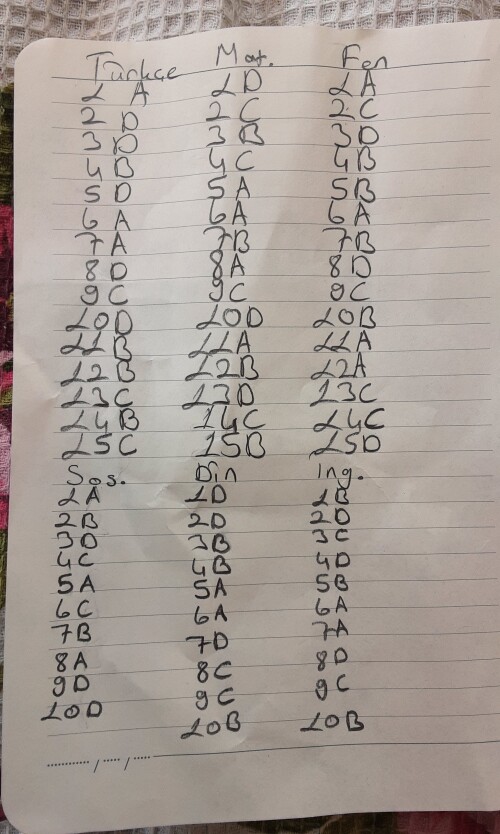 Türkçe Mat. Fen
1 A 1 D 1 A
2 D 2 C 2 C
3 D 3 B 3 D
4 B 4 C 4 B
5 D 5 A 5 B
6 A 6 A 6 A
7 A 7 B 7 B
8 D 8 A 8 D
9 C 9 C 9 C
10 D 10 D 10 B
11 B 11 A 11 A
12 B 12 B 12 A
13 C 13 D 13 C
14 B 14 C 14 C
15 C 15 B 15 D
Sos. Din Ing.
1 A 1 D 1 B
2 B 2 D 2 D
3 D 3 B 3 C
4 C 4 B 4 D
5 A 5 A 5 B
6 C 6 A 6 A
7 B 7 D 7 A
8 A 8 C 8 D
9 D 9 C 9 C
10 D 10 B 10 B
............ / ..... / .....